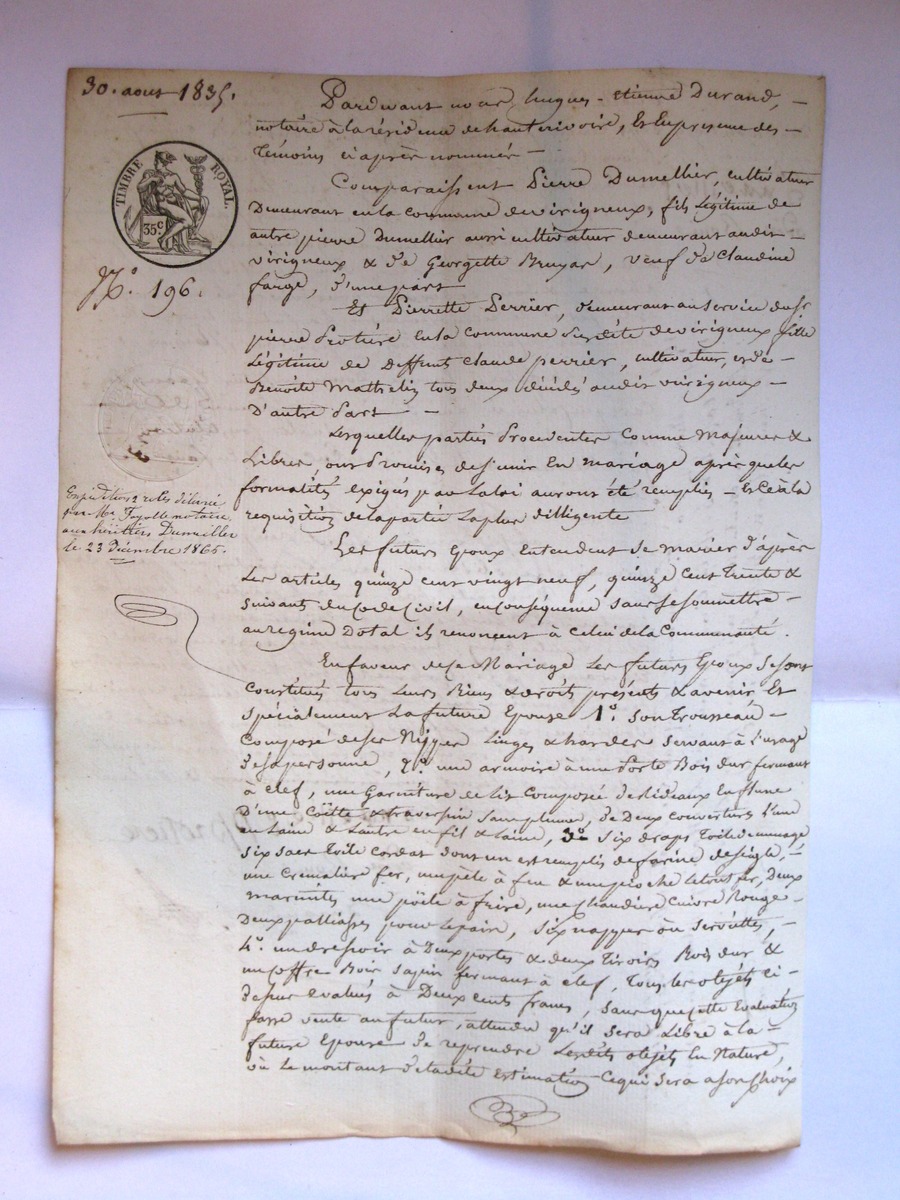 30. aout 1835.
TIMBRE ROYAL.
35c
No. 196.
Expédition 2 roles délivré
par Me Fayolle notaire
aux héritiers Dumellier
le 23 Décembre 1865.
Pardevant nous hugues-etienne Durand,
notaire à la résidence de hauterivoire, Et En presence des
Témoins ci après nommés
Comparaissent Pierre Dumellier, cultivateur
Demeurant en la commune de virigneux, fils Légitime de
autre pierre Dumellier aussi cultivateur demeurant audit
virigneux & de Georgette Bruyas, veuf de Claudine
farge, d'une part
Et Pierrette Perrier, demeurant au service du sr
pierre Protière en la commune susdite de virigneux fille
Légitime de Deffunts Claude perrier, cultivateur, et de
Benoite Mathelin tous deux décédés audit virigneux
D'autre Part
Lesquelles parties Procedantes comme Majeures &
Libres, ont Promis de s'unir En mariage après que les
formalités exigés par La Loi auront été remplies Et ce à la
requisition de la partie La plus dilligente
Les futurs Epoux Entendent se marier d'après
Les articles quinze cent vingt neuf, quinze cent trente &
suivants du Code Civil, en conséquence sans se soumettre
au regime Dotal ils renoncent à celui de la Communauté.
En faveur de ce Mariage Les futurs Epoux se sont
Constitués tous Leurs Biens & droits présents & avenir Et
spécialement La future Epouse 1o. son Trousseau
Composé de ses Nippes Linges & hardes servant à l'usage
de sa personne, 2o. une armoire à une Porte Bois dur fermant
à clef, une Garniture de Lit Composée de Rideaux En
D'une Coëtte & traversin sans plume, de Deux couvertures l'une
en Laine & L'autre en fil & Laine, 3o. six draps Toile de menage
six sacs Toile cordat dont un est remplis de farine de seigle,
une Cremaliere fer, une pèle à feu & une pioche le tout fer, Deux
marmites une poële à frire, une chaudiere Cuivre Rouge
Deux palliasses pour Le pain, six nappes ou serviettes,
4o. un dressoir à Deux portes & deux Tiroirs Bois dur &
un coffre Bois sapin fermant à clef, Tous les objets ci-
dessus Evalués à Deux cents francs, sans que cette Evaluation
fasse vente au futur, attendu qu'il sera Libre à la
future Epouse de reprendre Lesdits objets En Nature,
où Le montant de ladite Estimation Ce qui sera a son choix